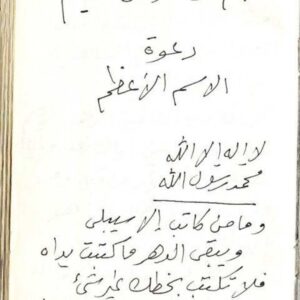 دعوة
الاسم الأعظم
لا إله إلا الله
محمد رسول الله
وما من كاتب إلا سيبلى
ويبقى الدهر ما كتبت يداه
فلا تكتب بخطك غير شئ